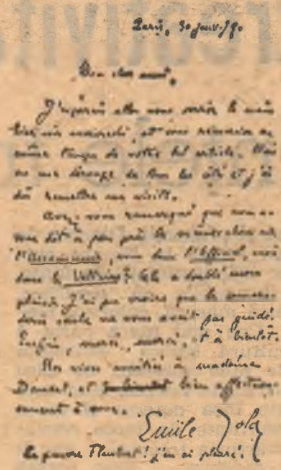 Paris, 30 janv. 79.
Mon cher ami,
J'espérais aller vous serrer la main
hier soir mercredi, et vous remercier en
même temps de votre bel article. Mais
on me dérange de tous les côtés et j'ai
dû remettre ma visite.
Avez-vous remarqué que nous a-
peu près
l'Assommoir, vous dans l'Officiel, moi
dans le Voltaire? Cela a doublé mon
plaisir. J'ai pu croire que la
seule ne vous avait pas guidé.
Enfin, merci, merci, et à bientôt.
Nos vives amitiés à madame
Daudet, et bien affectueu-
sement à vous.
Emile Zola
Le pauvre Flaubert! j'en ai pleuré.